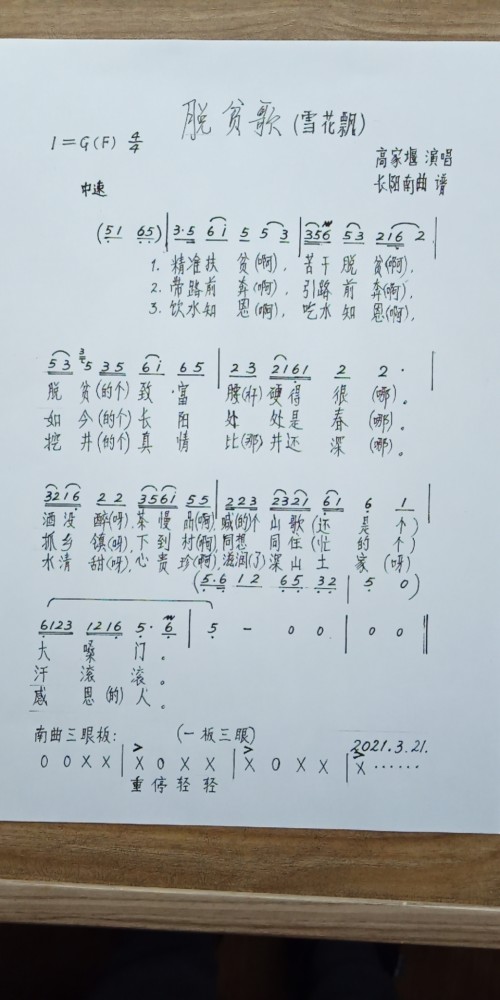 脱贫歌(雪花飘)
1=G(F) 4/4
高家堰 演唱
长阳南曲 谱
中速
(51 65) | 3·5 6i 5 53 | 356 53 216 2 |
1. 精准扶 贫(啊), 苦干脱 贫(啊),
2. 带路前 奔(啊), 引路前 奔(啊),
3. 饮水知 恩(啊), 吃水知 恩(啊),
53 3 5 35 6i 65 | 23 2161 2 2· |
脱 贫(的个)致·富 腰(杆)硬得 很 (哪)。
如 今(的个)长 阳 处 处是 春 (哪)。
挖 井(的个)真 情 比(那)井还 深 (哪)。
3216 22 356i 55 | 223 2321 61 6 1 |
酒没 醉(呀),茶慢 品(啊) 喊(的)个 山歌(还 是 个)
抓乡 镇(呀),下到 村(啊),同想 同住(忙 的 个)
水清 甜(呀),心贵 珍(啊),滋润(了)深山土 家 (呀)
(5·6 12 65 32 | 5 0)
6123 1216 5· 6 | 5 - 0 0 | 0 0 ‖
大 嗓 门。
汗 滚 滚。
感 恩(的)人。
南曲三眼板: (一板三眼)
2021.3.21.
0 0 X X | X 0 X X | X 0 X X | X ······
重 停 轻 轻